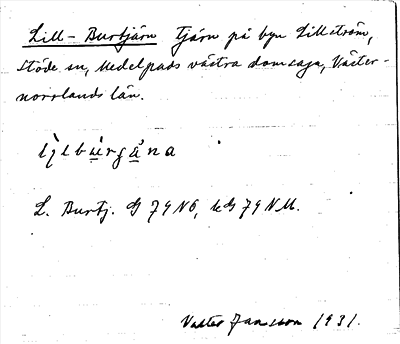 Lill-Burtjärn tjärn på byn Lillström,
Stöde sn, Medelpads västra domsaga, Väster-
norrlands län.
L. Burtj. G 79 NO, kG 79 NM.
Valter Jansson 1931.